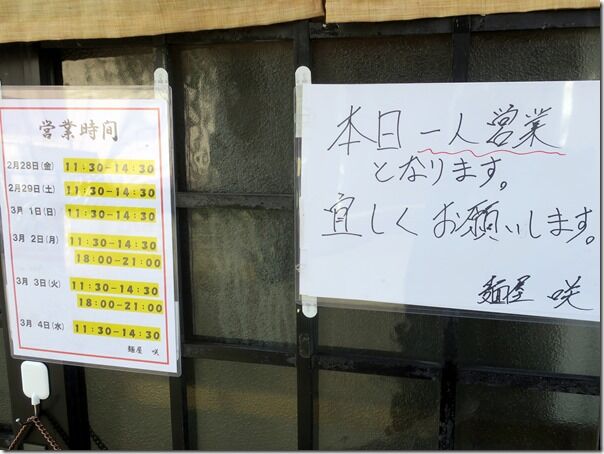 営業時間
2月28日(金) 11:30-14:30
2月29日(土) 11:30-14:30
3月 1日(日) 11:30-14:30
3月 2日(月) 11:30-14:30
18:00-21:00
3月 3日(火) 11:30-14:30
18:00-21:00
3月 4日(水) 11:30-14:30
麺屋 咲
本日 一人営業
となります。
宜しくお願いします。
麺屋 咲